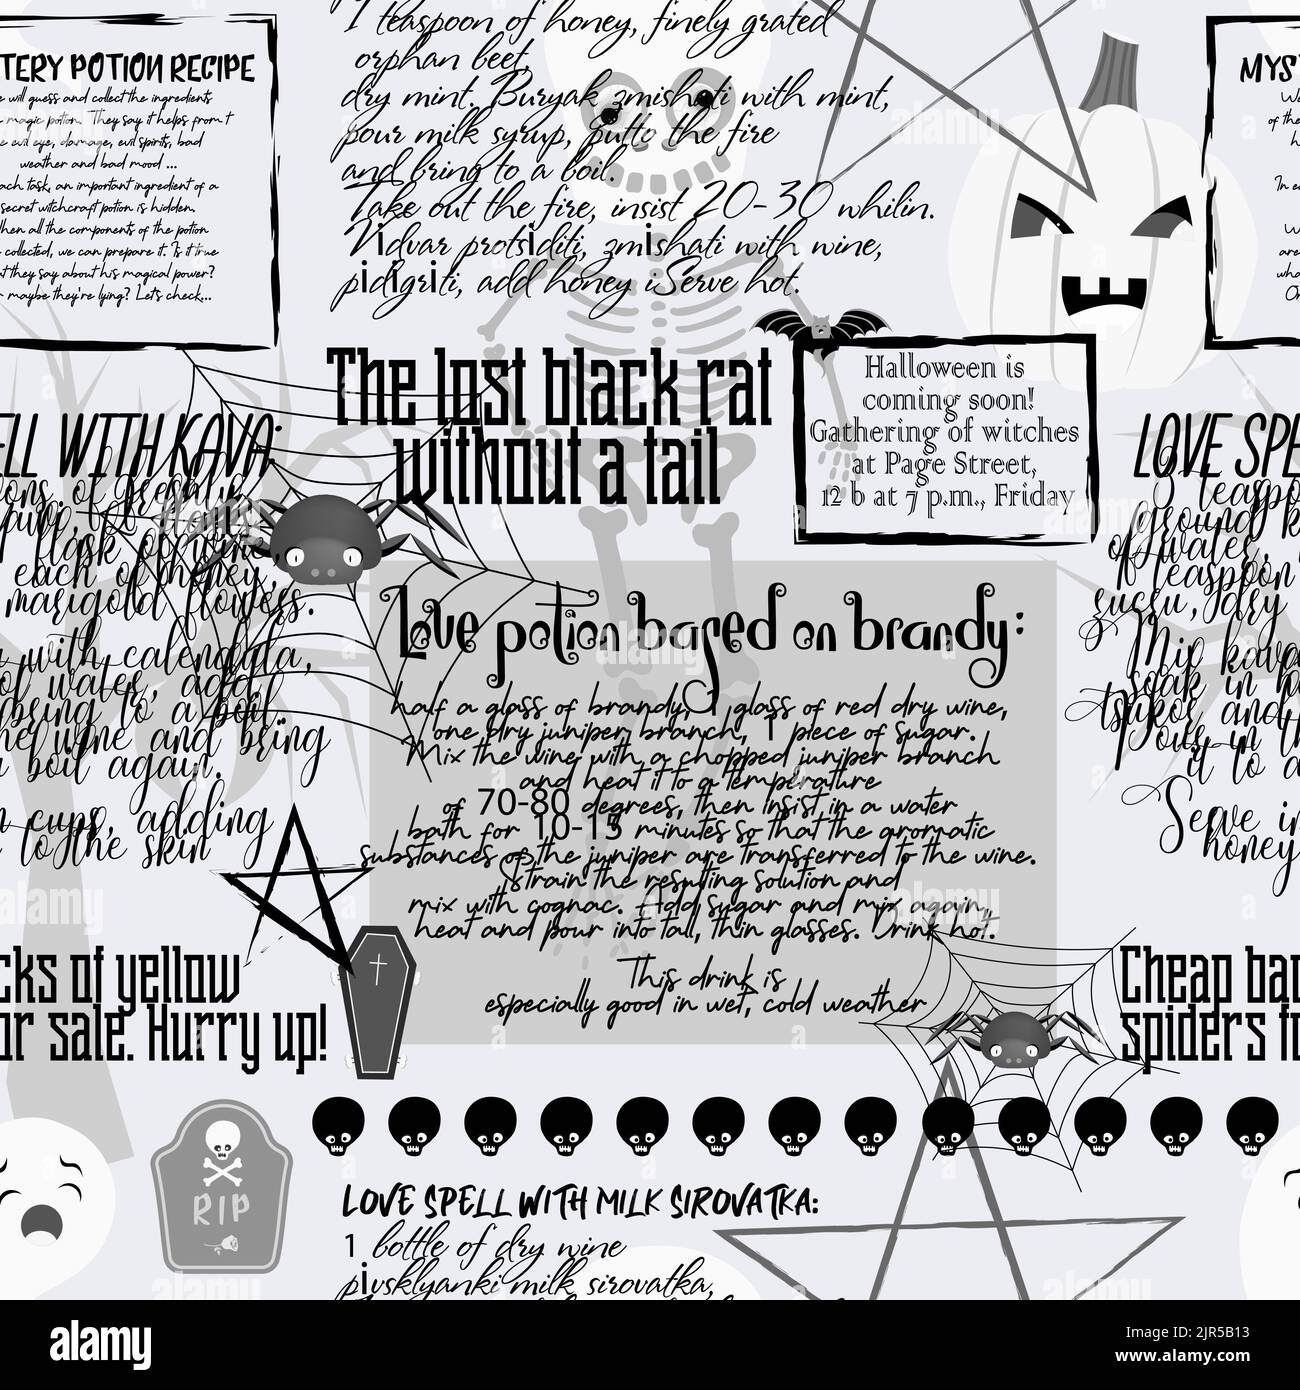 TERY POTION RECIPE
e will guess and collect the ingredients
e magic potion. They say it helps from t
e evil eye, damage, evil spirits, bad
weather and bad mood ...
ach task, an important ingredient of a
secret witchcraft potion is hidden.
hen all the components of the potion
collected, we can prepare it. Is it true
t they say about his magical power?
r maybe they're lying? Let's check...
1 teaspoon of honey, finely grated
orphan beet,
dry mint. Buryak zmishati with mint,
pour milk syrup, putto the fire
and bring to a boil.
Take out the fire, insist 20-30 whilin.
Nidvar protsiditi, zmishati with wine,
pidigriti, add honey iServe hot.
MYS
We
of the
h
In ea
W
are
wha
Or
The lost black rat
without a tail
Halloween is
coming soon!
Gathering of witches
at Page Street,
12 b at 7 p.m., Friday
ELL WITH KAVA:
ons of freshly
flask of wine,
each of honey,
marigold flowers.
with calendula,
of water, add
bring to a boil.
he wine and bring
a boil again.
n cups, adding
to the skin
Love potion based on brandy:
half a glass of brandy, 1 glass of red dry wine,
one dry juniper branch, 1 piece of sugar.
Mix the wine with a chopped juniper branch
and heat it to a temperature
of 70-80 degrees, then insist in a water
bath for 10-15 minutes so that the aromatic
substances of the juniper are transferred to the wine.
Strain the resulting solution and
mix with cognac. Add sugar and mix again,
heat and pour into tall, thin glasses. Drink hot.
This drink is
especially good in wet, cold weather
LOVE SPE
3 teaspo
ground k
of water,
1 teaspoon
tsukru, dry
Mix kava
soak in
tsukor and
Pour in th
it to a
Serve in
honey
cks of yellow
or sale. Hurry up!
Cheap bac
spiders fo
RIP
LOVE SPELL WITH MILK SIROVATKA:
1 bottle of dry wine
pivsklyanki milk sirovatka,
alamy
Image ID: 2JR5B13
www.alamy.com